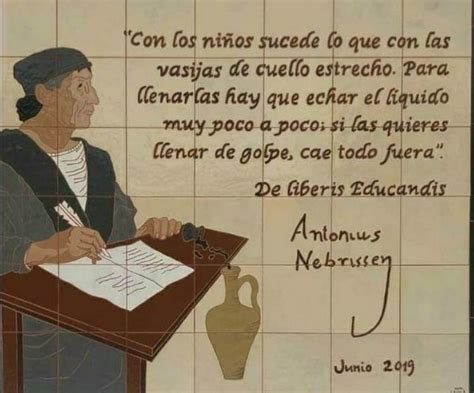 "Con los niños sucede lo que con las
vasijas de cuello estrecho. Para
llenarlas hay que echar el líquido
muy poco a poco; si las quieres
llenar de golpe, cae todo fuera".
De liberis Educandis
Antonius
Nebrissen
Junio 2019